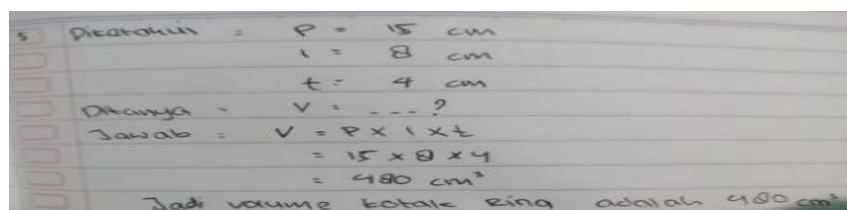 5 Diketahui = P = 15 cm
l = 8 cm
t = 4 cm
Ditanya = V = ---?
Jawab = V = P × l × t
= 15 × 8 × 4
= 480 cm³
Jadi volume kotak Ring adalah 480 cm³